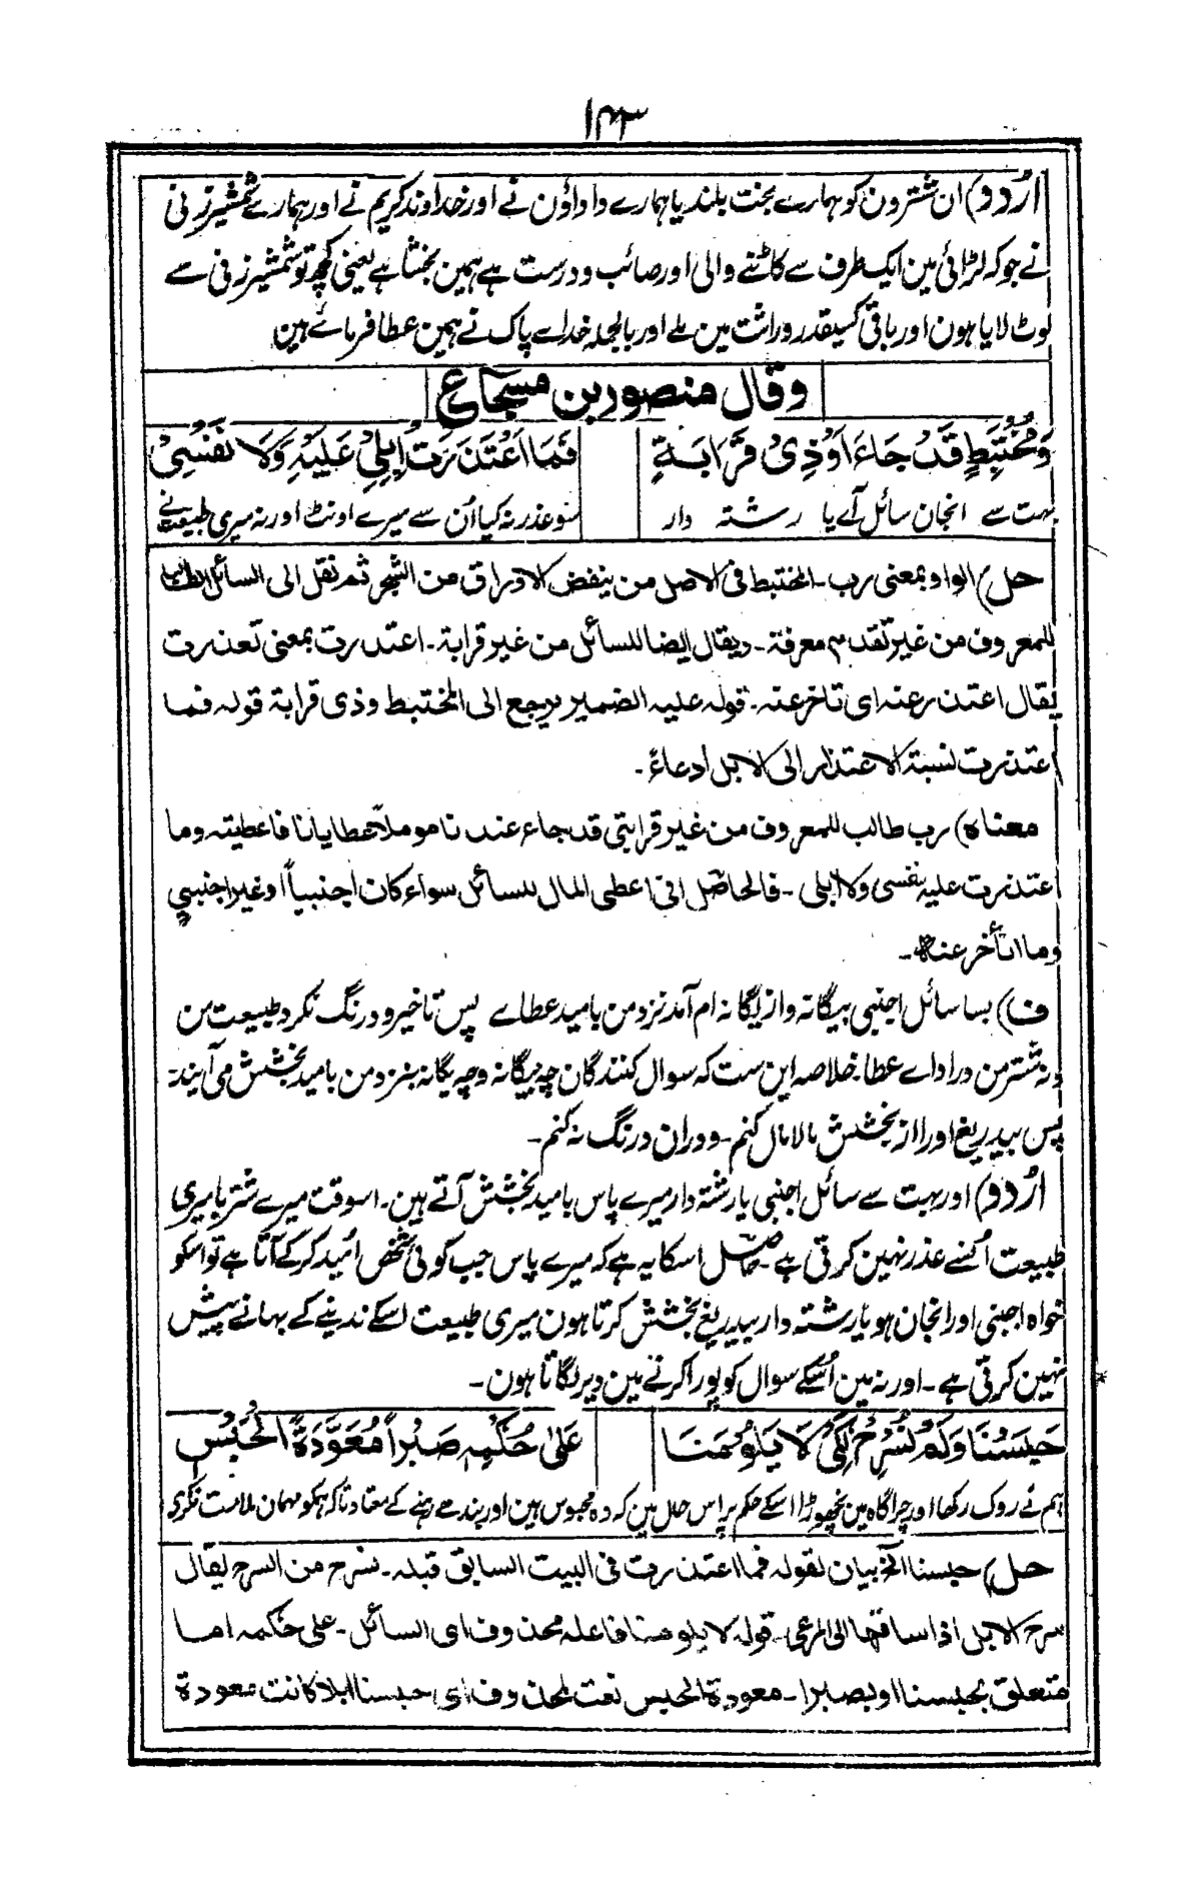 ۱۴۳
اُردو) ان شترون کو ہمارے بخت بلند یا ہمارے داداؤن نے اور خداوند کریم نے اور ہمارے شمشیر زنی
نے جو کہ لڑائی مین ایک طرف سے کاٹنے والی اور صائب و درست ہے ہمین بخشا ہے یعنی کچھ تو شمشیر زنی سے
لوٹ لایا ہون اور باقی کسیقدر وراثت مین ملے اور بالجملہ خداے پاک نے ہمین عطا فرمائے ہین
وقال منصور بن مسجاع
وَمُخْتَبِطٍ قَدْ جَاءَ اَوْ ذِیْ قَرَابَةٍ فَمَا اعْتَذَرَتْ اِبِلِیْ عَلَیْہِ وَلَا نَفْسِیْ
بہت سے انجان سائل آے یا رشتہ دار سو عذر نہ کیا اُن سے میرے اونٹ اور نہ میری طبیعت نے
حل) الواو بمعنی رب۔ المختبط فی الاصل من ینفض الاوراق من الشجر ثم نقل الی السائل الطالب
للمعروف من غیر تقدم معرفة۔ ویقال ایضا للسائل من غیر قرابة۔ اعتذرت بمعنی تعذرت
یقال اعتذر عنہ ای تاخر عنہ۔ قولہ علیہ الضمیر یرجع الی المختبط وذی قرابة قولہ فما
اعتذرت نسبة الاعتذار الی الابل ادعاءً۔
معناہ) رب طالب للمعروف من غیر قرابتی قد جاء عندنا موملاً عطایانا فاعطیتہ وما
اعتذرت علیہ نفسی ولا ابلی۔ فالحاصل انی اعطی المال للسائل سواء کان اجنبیاً او غیر اجنبی
وما اتأخر عنہ۔
ف) بسا سائل اجنبی بیگانہ و از یگانہ ام آمد نزد من بامید عطاے پس تاخیر و درنگ نکرد طبیعت من
ونہ شتر من در اداے عطا۔ خلاصہ این ست کہ سوال کنندگان چہ بیگانہ وچہ یگانہ بنزد من بامید بخشش می آیند۔
پس بیدریغ او را از بخشش مالامال کنم۔ ودران درنگ نہ کنم۔
اُردو) اور بہت سے سائل اجنبی یا رشتہ دار میرے پاس بامید بخشش آتے ہین۔ اسوقت میرے شتر یا میری
طبیعت اُنسے عذر نہین کرتی ہے۔ حاصل اسکا یہ ہے کہ میرے پاس جب کوئی شخص اُمید کر کے آتا ہے تو اسکو
خواہ اجنبی اور انجان ہو یا رشتہ دار بیدریغ بخشش کرتا ہون میری طبیعت اسکے ندینے کے بہانے پیش
نہین کرتی ہے۔ اور نہ مین اُسکے سوال کو پورا کرنے مین دیر لگاتا ہون۔
حَبَسْنَا وَلَمْ نُسْرِحْ لِکَیْ لَا یَلُوْمَنَا عَلیٰ حُکْمِہٖ صَبْراً مُعَوَّدَةَ الْحَبْسِ
ہم نے روک رکھا اور چراگاہ مین نچھوڑا اسکے حکم پر اس حال مین کہ وہ محبوس ہین اور بندھے رہنے کے معتاد تاکہ ہمکو مہمان ملامت نکرے
حل) حبسنا الخ بیان لقولہ فما اعتذرت فی البیت السابق قبلہ۔ نسرح من السرح یقال
سرح الابل اذا ساقہا الی المرعی۔ قولہ لا یلومنا فاعلہ محذوف ای السائل۔ علی حکمہ اما
متعلق بحبسنا او بصبرا۔ معودة الحبس نعت لمحذوف ای حبسنا ابلا کانت معودة